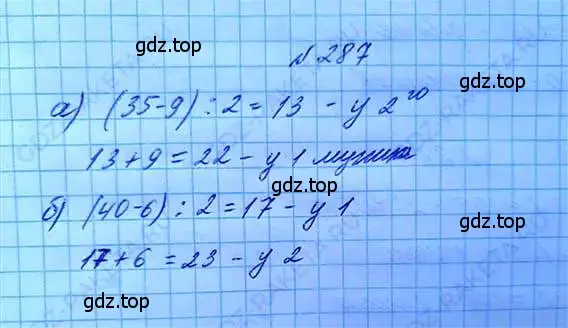 gdz.top
№ 287
gdz.top
а) (35-9) : 2 = 13 - у 2го
13+9 = 22 - у 1 мужика
gdz.top
б) (40-6) : 2 = 17 - у 1
gdz.top
17+6 = 23 - у 2
gdz.top
gdz.top